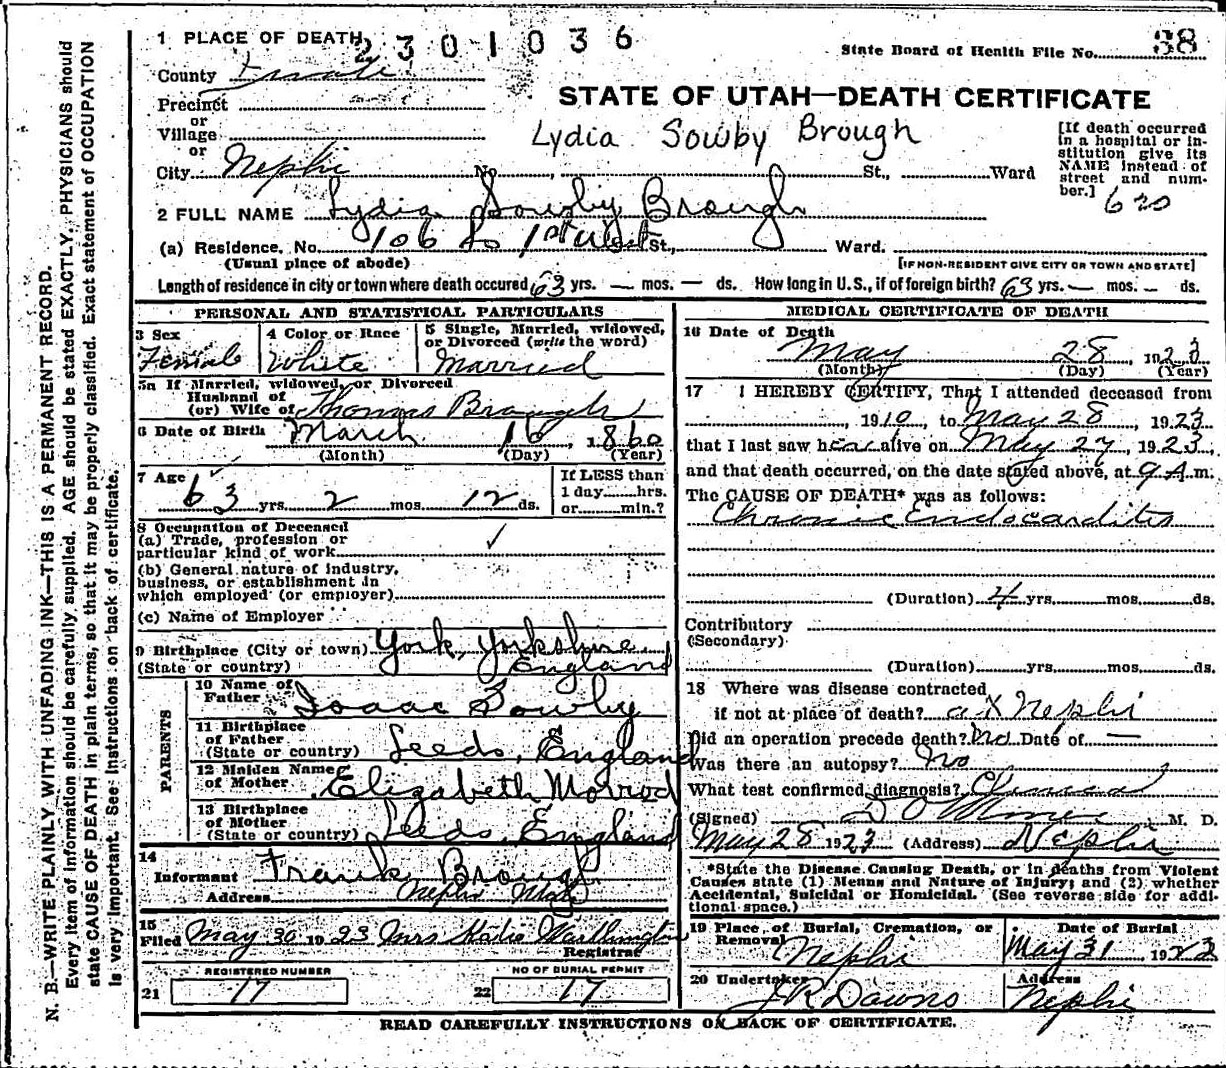 1 PLACE OF DEATH 2301036
State Board of Health File No. 38
County
STATE OF UTAH—DEATH CERTIFICATE
Precinct
or
Village
or
Lydia Sowby Brough
[If death occurred in a hospital or institution give its NAME instead of street and number.] 620
City Nephi No. , St., Ward
2 FULL NAME Lydia Sowby Brough
(a) Residence. No. 106 So 1st West St., Ward.
(Usual place of abode) [IF NON-RESIDENT GIVE CITY OR TOWN AND STATE]
Length of residence in city or town where death occured 63 yrs. — mos. — ds. How long in U.S., if of foreign birth? 63 yrs. — mos. – ds.
PERSONAL AND STATISTICAL PARTICULARS
3 Sex
Female
4 Color or Race
White
5 Single, Married, widowed, or Divorced (write the word)
Married
5a If Married, widowed, or Divorced
Husband of
(or) Wife of Thomas Brough
6 Date of Birth March 16, 1860
(Month) (Day) (Year)
7 Age
63 yrs. 2 mos. 12 ds.
If LESS than
1 day hrs.
or min.?
8 Occupation of Deceased
(a) Trade, profession or
particular kind of work
(b) General nature of industry,
business, or establishment in
which employed (or employer)
(c) Name of Employer
9 Birthplace (City or town) York, Yorkshire
(State or country) England
PARENTS
10 Name of
Father Isaac Sowby
11 Birthplace
of Father
(State or country) Leeds, England
12 Maiden Name
of Mother Elizabeth Morrod
13 Birthplace
of Mother
(State or country) Leeds, England
14
Informant Frank Brough
Address Nephi Utah
15
Filed May 30 1923 Mrs Katie Worthington
Registrar
REGISTERED NUMBER
21 17
NO OF BURIAL PERMIT
22 17
MEDICAL CERTIFICATE OF DEATH
16 Date of Death
May 28, 1923
(Month) (Day) (Year)
17 I HEREBY CERTIFY, That I attended deceased from
, 1910, to May 28, 1923
that I last saw her alive on May 27, 1923,
and that death occurred, on the date stated above, at 9 A.m.
The CAUSE OF DEATH* was as follows:
Chronic Endocarditis
(Duration) 4 yrs. mos. ds.
Contributory
(Secondary)
(Duration) yrs. mos. ds.
18 Where was disease contracted
if not at place of death? at Nephi
Did an operation precede death? No Date of —
Was there an autopsy? No
What test confirmed diagnosis? Clinical
(Signed) M. D.
May 28 1923 (Address) Nephi
*State the Disease Causing Death, or in deaths from Violent
Causes state (1) Menns and Nature of Injury; and (2) whether
Accidental, Suicidal or Homicidal. (See reverse side for additional space.)
19 Place of Burial, Cremation, or
Removal Nephi
Date of Burial
May 31 1923
20 Undertaker
J R Downs
Address
Nephi
READ CAREFULLY INSTRUCTIONS ON BACK OF CERTIFICATE.
N. B.—WRITE PLAINLY WITH UNFADING INK—THIS IS A PERMANENT RECORD.
Every item of information should be carefully supplied. AGE should be stated EXACTLY, PHYSICIANS should
state CAUSE OF DEATH in plain terms, so that it may be properly classified. Exact statement of OCCUPATION
is very important. See Instructions on back of certificate.